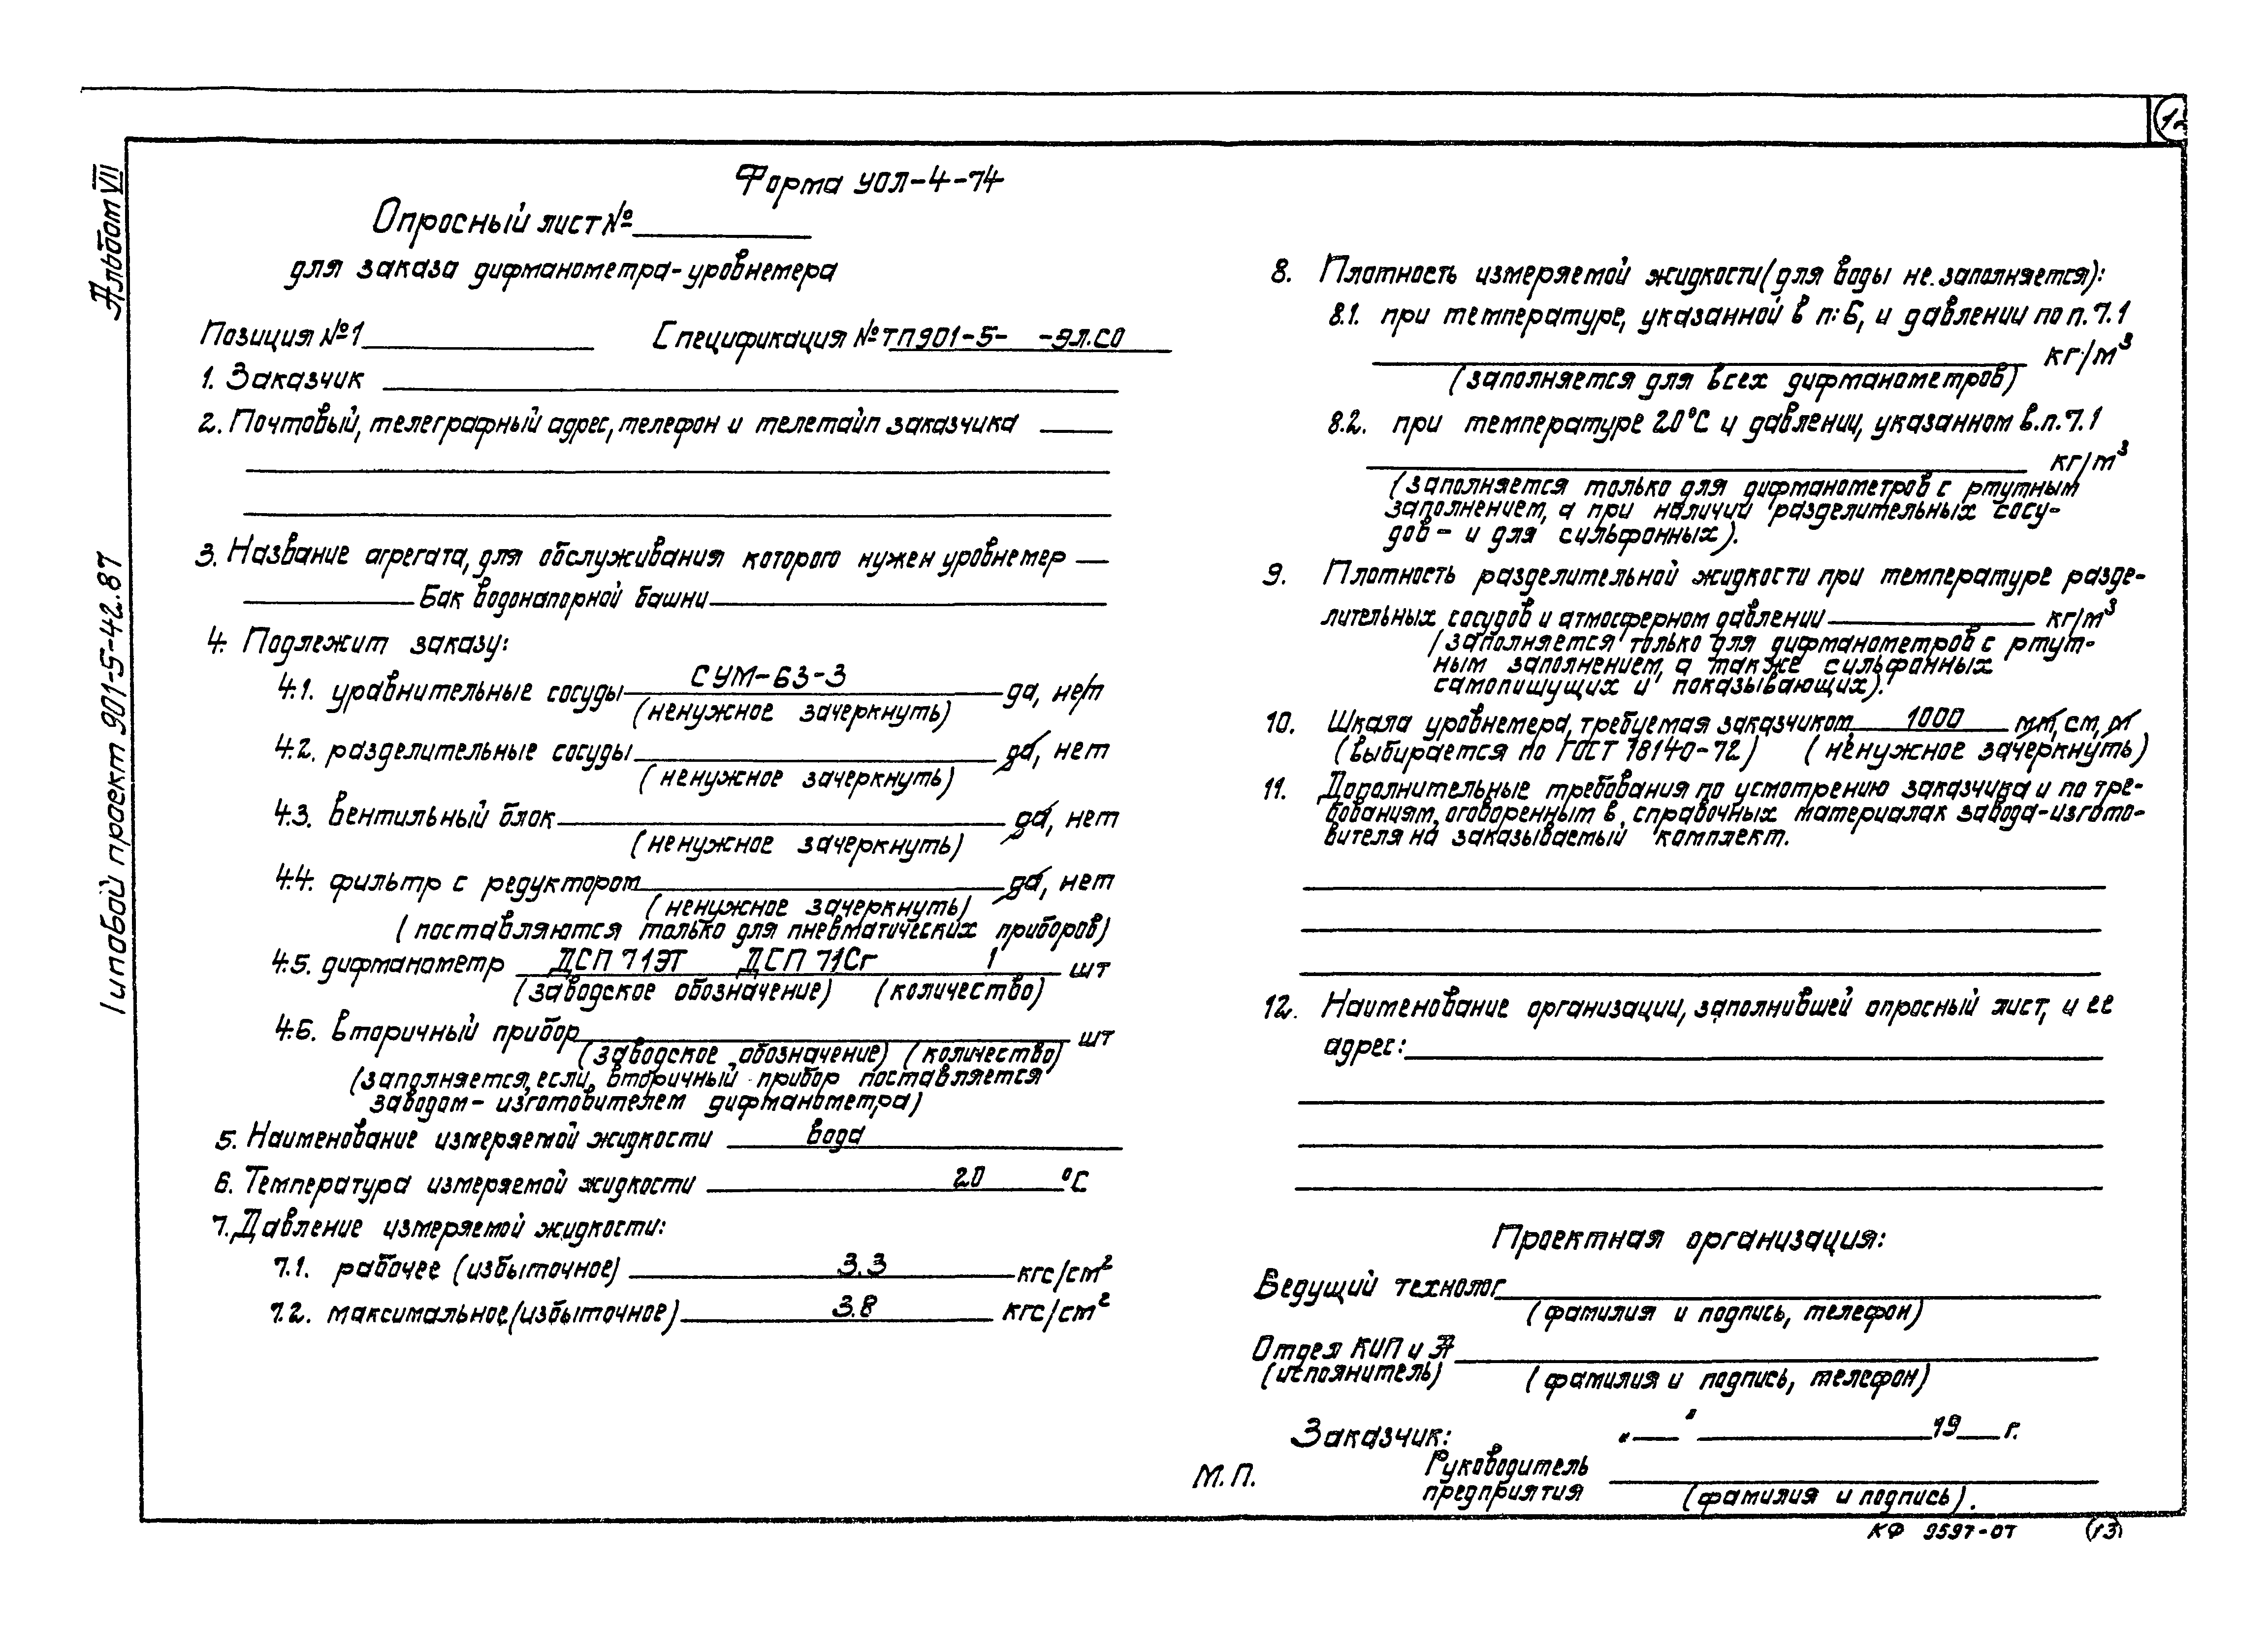 12
Альбом VII
Типовой проект 901-5-42.87
Форма УОЛ-4-74
Опросный лист №
для заказа дифманометра-уровнемера
Позиция №1 Спецификация № ТП901-5- -ЭЛ.СО
1. Заказчик
2. Почтовый, телеграфный адрес, телефон и телетайп заказчика
3. Название агрегата, для обслуживания которого нужен уровнемер
Бак водонапорной башни
4. Подлежит заказу:
4.1. уравнительные сосуды СУМ-63-3 да, нет
(ненужное зачеркнуть)
4.2. разделительные сосуды да, нет
(ненужное зачеркнуть)
4.3. Вентильный блок да, нет
(ненужное зачеркнуть)
4.4. фильтр с редуктором да, нет
(ненужное зачеркнуть)
(поставляются только для пневматических приборов)
4.5. дифманометр ДСП 71ЭТ ДСП 71Сг 1 шт
(заводское обозначение) (количество)
4.6. вторичный прибор шт
(заводское обозначение) (количество)
(заполняется, если вторичный прибор поставляется
заводом-изготовителем дифманометра)
5. Наименование измеряемой жидкости вода
6. Температура измеряемой жидкости 20 °С
7. Давление измеряемой жидкости:
7.1. рабочее (избыточное) 3.3 кгс/см²
7.2. максимальное (избыточное) 3.8 кгс/см²
8. Плотность измеряемой жидкости (для воды не заполняется):
8.1. при температуре, указанной в п. 6, и давлении по п. 7.1
кг/м³
(заполняется для всех дифманометров)
8.2. при температуре 20°С и давлении, указанном в.п. 7.1
кг/м³
(заполняется только для дифманометров с ртутным
заполнением, а при наличии разделительных сосу-
дов - и для сильфонных).
9. Плотность разделительной жидкости при температуре разде-
лительных сосудов и атмосферном давлении кг/м³
(заполняется только для дифманометров с ртут-
ным заполнением, а также сильфонных
самопишущих и показывающих).
10. Шкала уровнемера, требуемая заказчиком 1000 мм, см, м
(выбирается по ГОСТ 18140-72) (ненужное зачеркнуть)
11. Дополнительные требования по усмотрению заказчика и по тре-
бованиям, оговоренным в справочных материалах завода-изгото-
вителя на заказываемый комплект.
12. Наименование организации, заполнившей опросный лист, и ее
адрес:
Проектная организация:
Ведущий технолог
(фамилия и подпись, телефон)
Отдел КИП и А
(исполнитель) (фамилия и подпись, телефон)
Заказчик: " " 19 г.
М.П. Руководитель
предприятия
(фамилия и подпись).
КФ 9597-07 (13)